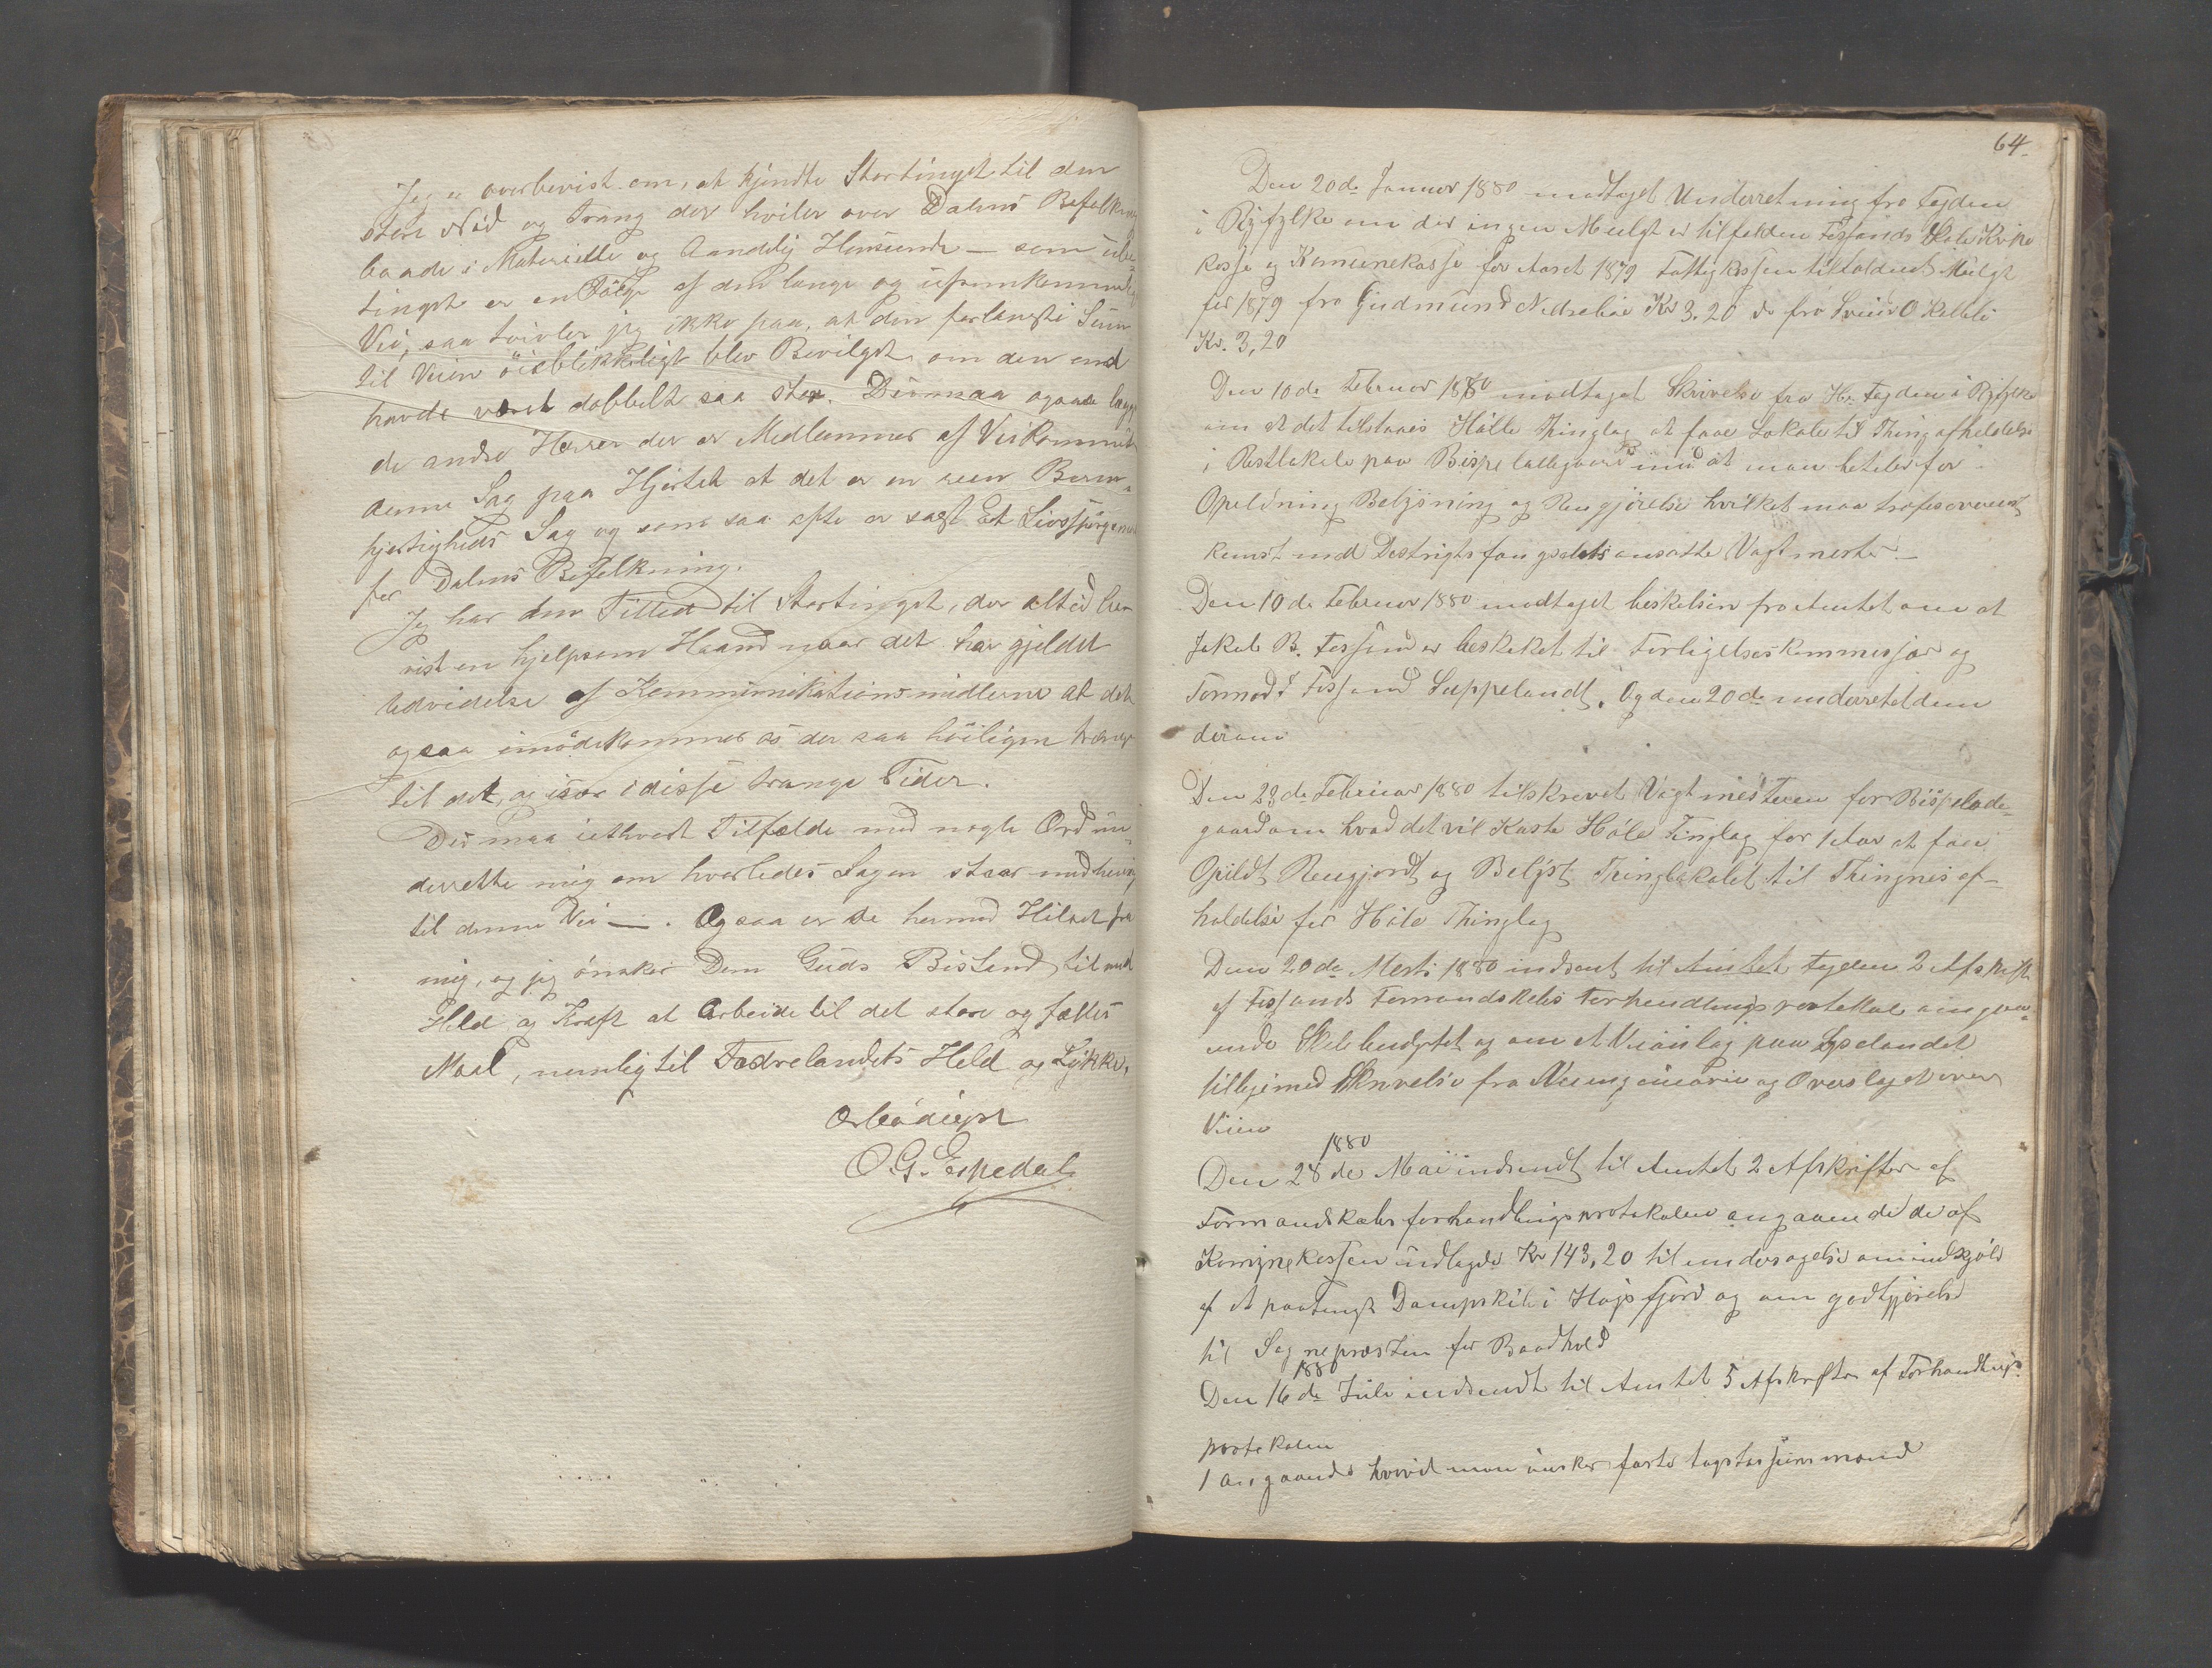 Jeg er overbevist om, at kjendte Stortinget til den
store Nød og Trang der hviler over Dalens Befolkning
baade i Materielle og Aandelig Henseende — som ube-
tinget er en Følge af den lange og ufremkommelige
Vei, saa tvivler jeg ikke paa, at den forlangte Sum
til Veien öieblikkeligt blev Bevilget om den end
havde været dobbelt saa stor. De maa ogsaa lægge
de andre Herrer der er Medlemmer af Veikommiteen
denne Sag paa Hjertet at det er en reen Barm-
hjertigheds Sag og som saa ofte er sagt Et Livsspörgsmaal
for Dalens Befolkning.
Jeg har den Tillid til Stortinget, der altid har
vist en hjelpsom Haand naar det har gjeldet
Udvidelse af Kommunikationsmidlerne at det
ogsaa imödekommer os der saa höiligen trænger
til det, og især i disse trange Tider.
De maa i ethvert Tilfælde med nogle Ord un-
derrette mig om hvorledes Sagen staar med hensyn
til denne Vei —. Ogsaa er De hermed Hilset fra
mig, og jeg önsker Dem Guds Bistand til med
Held og Kraft at Arbeide til det store og fælles
Maal, nemlig til Fædrelandets Held og Lykke.
Ærbödigst
O. G. Espedal
64.
Den 20de Januar 1880 modtaget Underretning fra Fogden
i Ryfylke om der ingen Mulgt er tilfalden Fossands Skole Kirke
kasse og Komunekasse for Aaret 1879 Fattigkassen tilfaldendt Mulgt
for 1879 fra Gudmund Nedrebø Kr 3.20 do fra Svend O
Kr. 3,20
Den 10de Februar 1880 modtaget Skrivelse fra Hr. Fogden i Ryfylke
om at det tilstaaes Hölle Thinglag at faae Lokale til Thingafholdelse
i Retslokale paa Bispeladegaard imod at man betaler for
Opeldning Belysning og Rengjörelse hvilket maa træfes overens-
komst med Destrigtsfængselets ansatte Vagtmester —
Den 10de Februar 1880 modtaget beskikelsen fra Amtet om at
Jakob B. Fossand er beskiket til Forligelseskommesjær og
Tormod Fossand Suppeleandt. Og den 20de underrettet dem
derom
Den 23de Februar 1880 tilskrevet Vagtmesteren for Bispelade-
gaard om hvad det vil Koste Höle Tinglag for 1 Aar at faae
Opildt Rengjordt og Belyst Thinglokalet til Thingnes af-
holdelse for Höle Thinglag
Den 20de Marts 1880 indsent til Amtet Fogden 2 Afskrift
af Fossands Formandskabs Forhandlingsprotokol angaa-
ende Skolebudgetet og om et Veianlæg paa Lyselandet
tilligemed Skrivelse fra og Overslaget over
Veien
1880
Den 28de Mai indsendt til Amtet 2 Afskrifter af
Formandskabs forhandlingsprotokolen angaaende de af
Komunekassen udlagde Kr 143,20 til undersøgelse om indkjöb
af et paatengt Dampskib i Højsfjord og om godtgjörelse
til Sognepræsten for Baadhold
1880
Den 16de Juli indsendt til Amtet 5 Afskrifter af Forhandlings-
protokolen
1 Angaaende